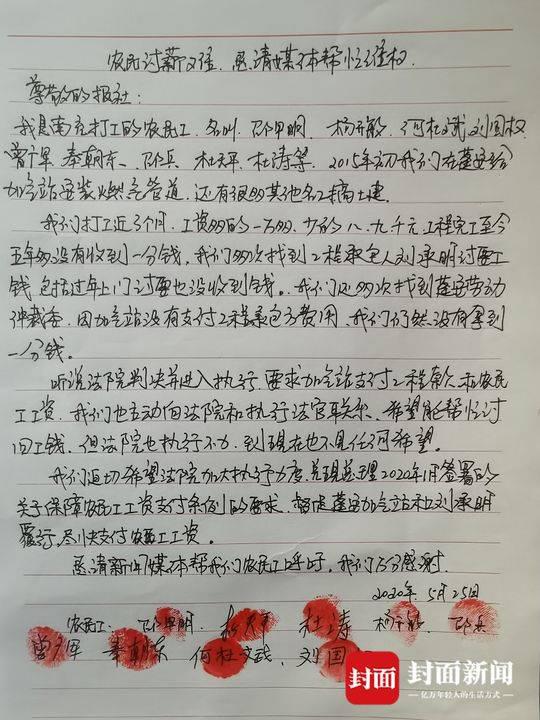 农民讨薪又难，恳请媒体帮忙维权
尊敬的报社：
我是南充打工的农民工，名叫、邓甲明、杨开敏、何杜斌、刘国权
曾广军、秦朝东、邓兵、杜天平、杜涛等，2015年初我们在蓬安给
加气站安装燃气管道，还有很多其他名工搞土建。
我们打工近3个月，工资多的一万多，少的八、九千元，工程完工至今
五年多没有收到一分钱，我们多次找到工程承包人刘承明讨要工
钱，包括过年上门讨要也没收到钱。我们还多次找到蓬安劳动
仲裁委，因加气站没有支付工程承包方费用，我们仍然没有拿到
一分钱。
听说法院判决并进入执行，要求加气站支付工程款和农民
工工资，我们也主动向法院和执行法官联系，希望能帮忙讨
回工钱，但法院也执行不力，到现在也不见任何希望。
我们迫切希望法院加大执行力度，兑现总理2020年1月签署的
关于保障农民工工资支付条例的要求，督促蓬安加气站和刘承明
履行，尽快支付农民工工资。
恳请新闻媒体帮我们农民工呼吁，我们万分感谢
2020年5月25日
农民工：邓甲明 杜天平 杜涛 杨开敏 邓兵
曾广军 秦朝东 何杜斌、刘国
封面 封面新闻
亿万年轻人的生活方式